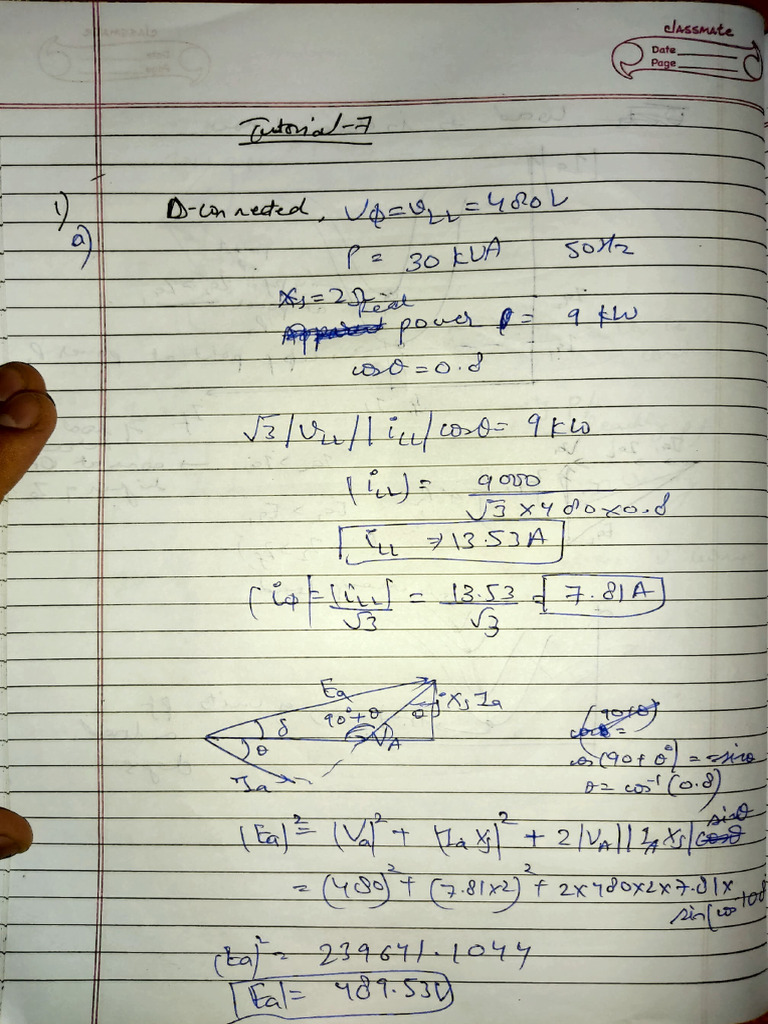 classmate
Date
Page
Tutorial-7
1)
a)
Δ-connected, Vφ = VLL = 480V
P = 30 KVA 50Hz
Xs = 2Ω
Real
Apparent power P = 9 kW
cosθ = 0.8
√3 |VLL| |iLL| cosθ = 9 kW
|iLL| = 9000 / √3 × 480 × 0.8
iLL ⇒ 13.53A
|iφ| = |iLL| / √3 = 13.53 / √3 = 7.81A
Ea
90°+θ
θ
jXsIa
δ
VA
θ
Ia
(90+θ)
cosθ =
cos(90+θ°) = -sinθ
θ = cos⁻¹(0.8)
|Ea|² = |Va|² + |Ia Xs|² + 2|VA||IA Xs| cosθ sinθ
= (480)² + (7.81×2)² + 2×480×2×7.81×
sin(cos⁻¹0.8
|Ea|² = 239641.1044
|Ea| = 489.53V